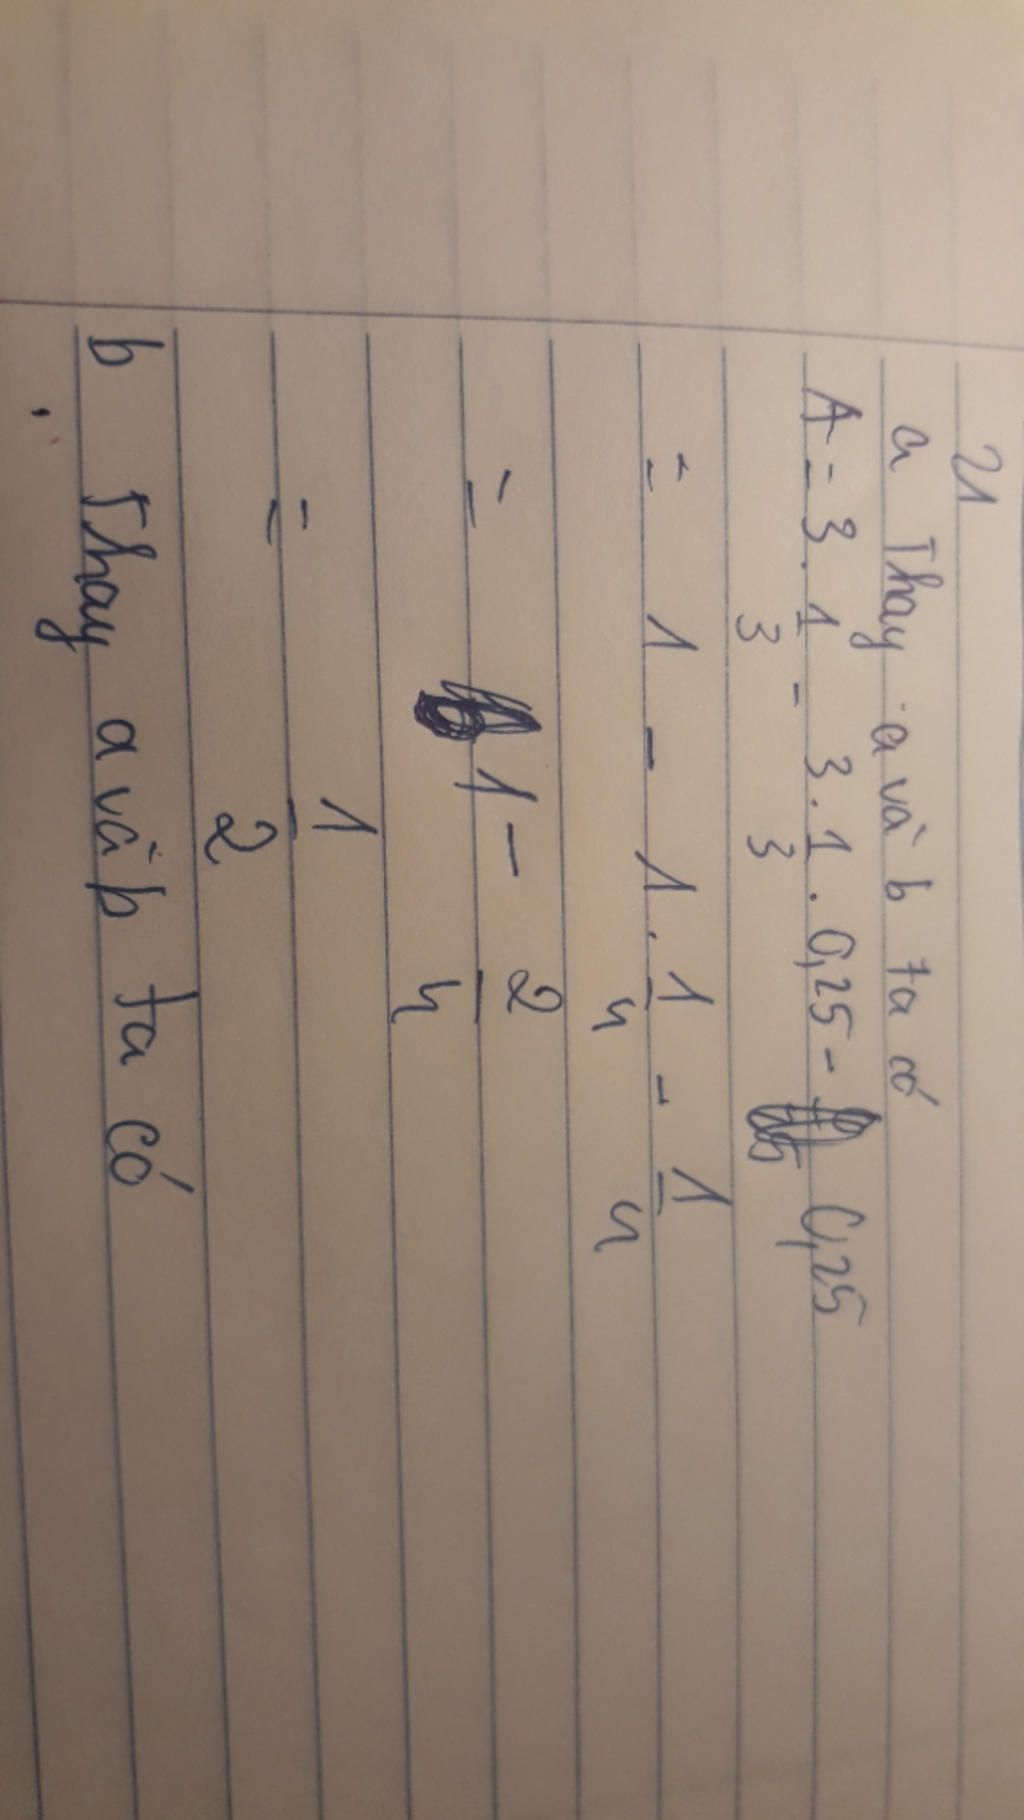 21
a Thay a và b ta có
A = 3. 1/3 - 3. 1/3 . 0,25 - 0,25
= 1 - 1. 1/4 - 1/4
= 1 - 2/4
= 1/2
b Thay a và b ta có